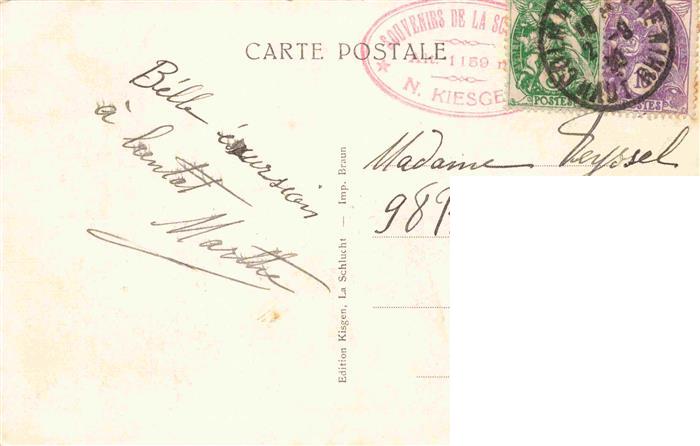 CARTE POSTALE
SOUVENIRS DE LA SC
Alt. 1159 m
N. KIESGE
POSTES
10
POSTES
Belle éxursion
à bientôt
Marthe
Edition Kisgen, La Schlucht — Imp. Braun
Madame Veyssel
989